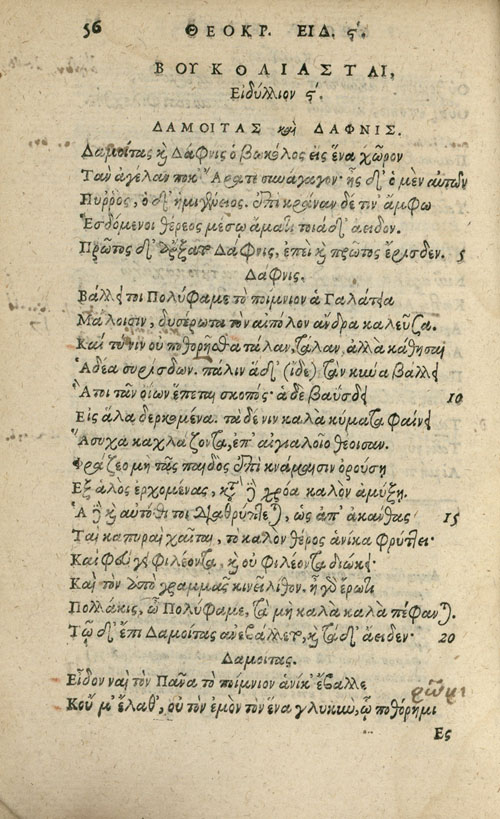 56 ΘΕΟΚΡ. ΕΙΔ. ϛ΄.
ΒΟΥΚΟΛΙΑΣΤΑΙ,
Εἰδύλλιον ϛ΄.
ΔΑΜΟΙΤΑΣ καὶ ΔΑΦΝΙΣ.
Δαμοίτας κὴ Δάφνις ὁ βωκόλος εἰς ἕνα χῶρον
Τὰν ἀγέλαν ποκ᾽ Ἄρατε συνάγαγον· ἦς δ᾽ ὁ μὲν αὐτῶν
Πυῤῥὸς, ὁ δ᾽ ἡμιγένειος. ἐπὶ κράναν δέ τιν᾽ ἄμφω
Ἑσδόμενοι θέρεος μέσῳ ἄματι τοιάδ᾽ ἄειδον.
Πρᾶτος δ᾽ ἄρξατο Δάφνις, ἐπεὶ κὴ πρᾶτος ἔρισδεν. 5
Δάφνις.
Βάλλει τοι Πολύφαμε τὸ ποίμνιον ἁ Γαλάτεια
Μάλοισιν, δυσέρωτα τὸν αἰπόλον ἄνδρα καλεῦσα.
Καὶ τύ νιν οὐ ποθορῆσθα τάλαν, τάλαν, ἀλλὰ κάθησαι
Ἁδέα συρίσδων. πάλιν ἅδ᾽ (ἴδε) τὰν κύνα βάλλει
Ἅ τοι τᾶν ὀΐων ἕπεται σκοπός· ἁ δὲ βαΰσδει 10
Εἰς ἅλα δερκομένα. τὰ δέ νιν καλὰ κύματα φαίνει
Ἄσυχα καχλάζοντα, ἐπ᾽ αἰγιαλοῖο θεοῖσαν.
Φράζεο μὴ τᾶς παιδὸς ἐπὶ κνάμαισιν ὀρούσῃ
Ἐξ ἁλὸς ἐρχομένας, κατὰ δὲ χρόα καλὸν ἀμύξῃ.
Ἁ δὲ κὴ αὐτόθι τοι διαθρύπτεται, ὡς ἀπ᾽ ἀκάνθας 15
Ταὶ καπυραὶ χαῖται, τὸ καλὸν θέρος ἁνίκα φρύττει·
Καὶ φεύγει φιλέοντα, κὴ οὐ φιλέοντα διώκει·
Καὶ τὸν ἀπὸ γραμμᾶς κινεῖ λίθον. ἦ γὰρ ἔρωτι
Πολλάκις, ὦ Πολύφαμε, τὰ μὴ καλὰ καλὰ πέφανται.
Τῷ δ᾽ ἔπι Δαμοίτας ἀνεβάλλετο, κὴ τάδ᾽ ἄειδεν· 20
Δαμοίτας.
Εἶδον ναὶ τὸν Πᾶνα τὸ ποίμνιον ἁνίκ᾽ ἔβαλλε
ρῶμι
Κοὔ μ᾽ ἔλαθ᾽, οὐ τὸν ἐμὸν τὸν ἕνα γλυκὺν, ᾧ ποθόρημι
Ἐς